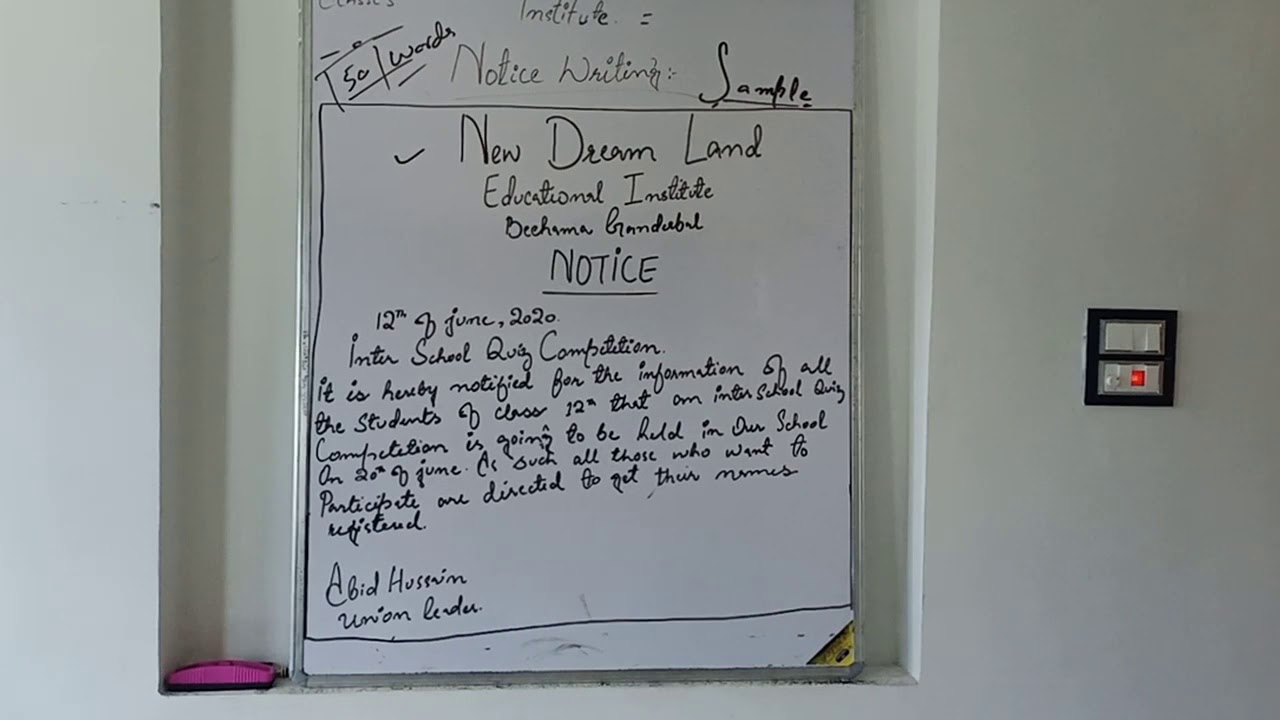 Classes
Institute. =
50 words
Notice Writing:- Sample
New Dream Land
Educational Institute
Beehama Ganderbal
NOTICE
12th of june, 2020.
Inter School Quiz Competition.
it is hereby notified for the information of all
the Students of class 12th that an inter School Quiz
Competition is going to be held in Our School
On 20th of june. As such all those who want to
Participate are directed to get their names
registered.
Abid Hussain
Union leader.